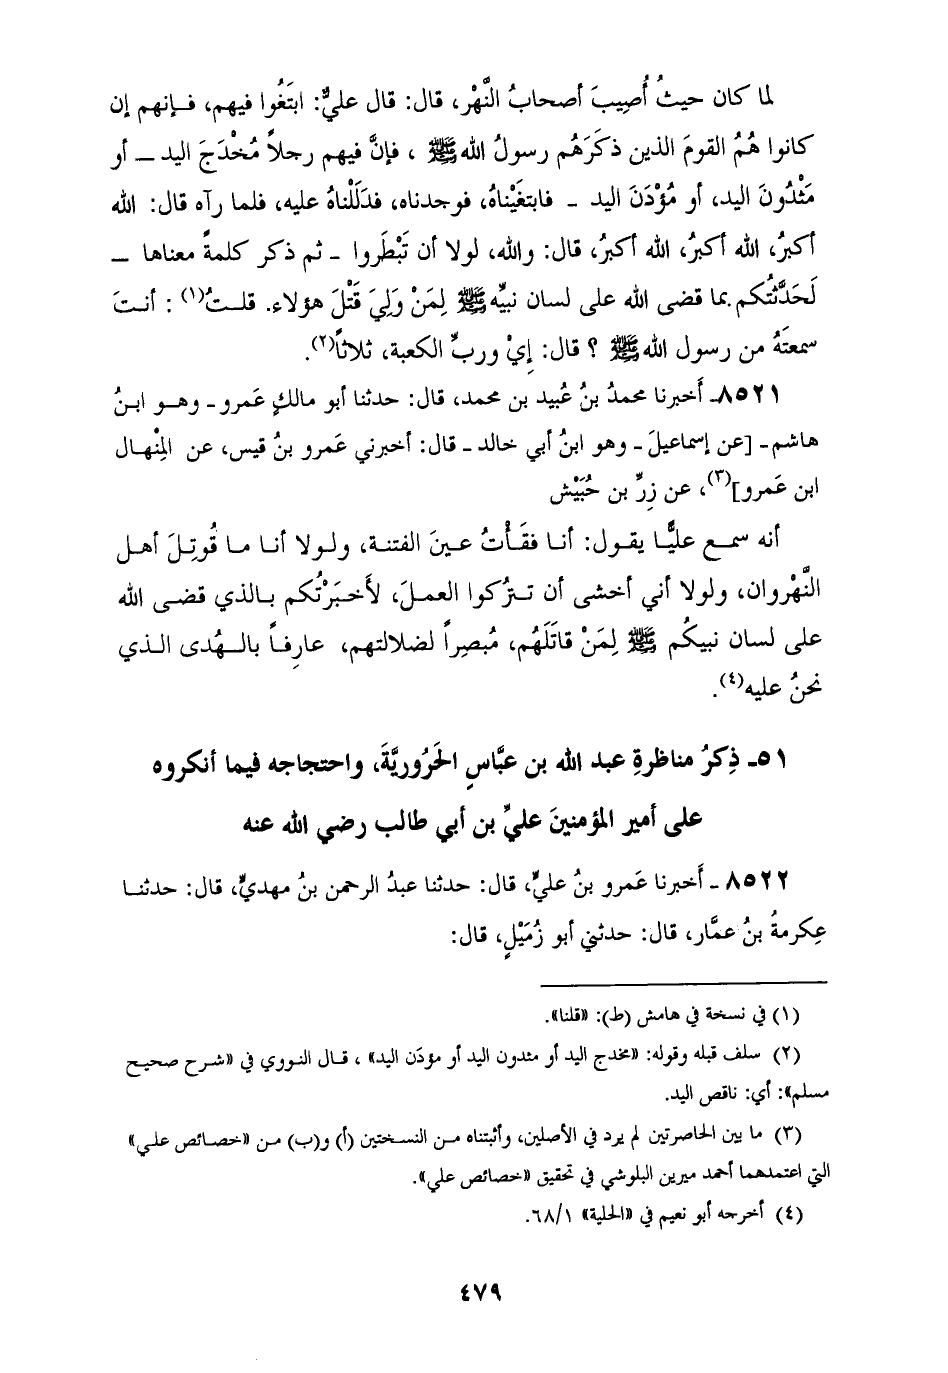 لما كان حيثُ أُصِيبَ أصحابُ النَّهْر، قال: قال عليٌّ: ابتَغُوا فيهم، فـإنهم إن
كانوا هُمُ القومَ الذين ذكَرَهُم رسولُ الله ﷺ ، فإنَّ فيهم رجلاً مُخْدَجَ اليد ـ أو
مَثْدُونَ اليد، أو مُؤْدَنَ اليد ـ فابتغَيْناهُ، فوجدناه، فدَلَلْناهُ عليه، فلما رآه قال: الله
أكبرُ، الله أكبرُ، الله أكبرُ، قال: والله، لولا أن تَبْطَروا ـ ثم ذكر كلمةً معناها ـ
لَحَدَّثْتُكم بما قضى الله على لسان نبيِّه ﷺ لِمَنْ وَلِيَ قَتْلَ هؤلاء. قلـتُ(١) : أنـتَ
سمعتَهُ من رسول الله ﷺ ؟ قال: إِيْ وربِّ الكعبة، ثلاثاً(٢).
٨٥٢١ـ أَخبرنا محمدُ بنُ عُبيد بن محمد، قال: حدثنا أبو مالكٍ عَمرو ـ وهـو ابـنُ
هاشم ـ [عن إسماعيلَ ـ وهو ابنُ أبي خالد ـ قال: أخبرني عَمرو بنُ قيس، عن المِنْهـال
ابن عَمرو](٣)، عن زِرِّ بن حُبَيْش
أنه سمـع عليًّـا يقـول: أنـا فقَـأْتُ عـينَ الفتنـة، ولـولا أنـا مـا قُوتِـلَ أهـل
النَّهْروان، ولولا أني أخشى أن تـترُكوا العمـلَ، لأَخـبَرْتُكم بـالذي قضـى الله
على لسان نبيكُم ﷺ لِمَنْ قاتَلَهُم، مُبصِراً لضلالتهم، عارِفـاً بالـهُدى الـذي
نحنُ عليه(٤).
٥١ـ ذِكرُ مناظرةِ عبد الله بن عبَّاسٍ الحَرُوريَّةَ، واحتجاجه فيما أنكروه
على أمير المؤمنينَ عليِّ بن أبي طالب رضي الله عنه
٨٥٢٢ ـ أَخبرنا عَمرو بنُ عليٍّ، قال: حدثنا عبدُ الرحمن بنُ مهديٍّ، قال: حدثنـا
عِكرمةُ بنُ عمَّار، قال: حدثني أبو زُمَيْلٍ، قال:
(١) في نسخة في هامش (ط): «قلنا».
(٢) سلف قبله وقوله: «مخدج اليد أو مثدون اليد أو مؤدَن اليد» ، قـال النـووي في «شـرح صحيـح
مسلم»: أي: ناقص اليد.
(٣) ما بين الحاصرتين لم يرد في الأصلين، وأثبتناه مـن النسـختين (أ) و(ب) مـن «خصـائص علـي»
التي اعتمدهما أحمد ميرين البلوشي في تحقيق «خصائص علي».
(٤) أخرجه أبو نعيم في «الحلية» ٦٨/١.
٤٧٩